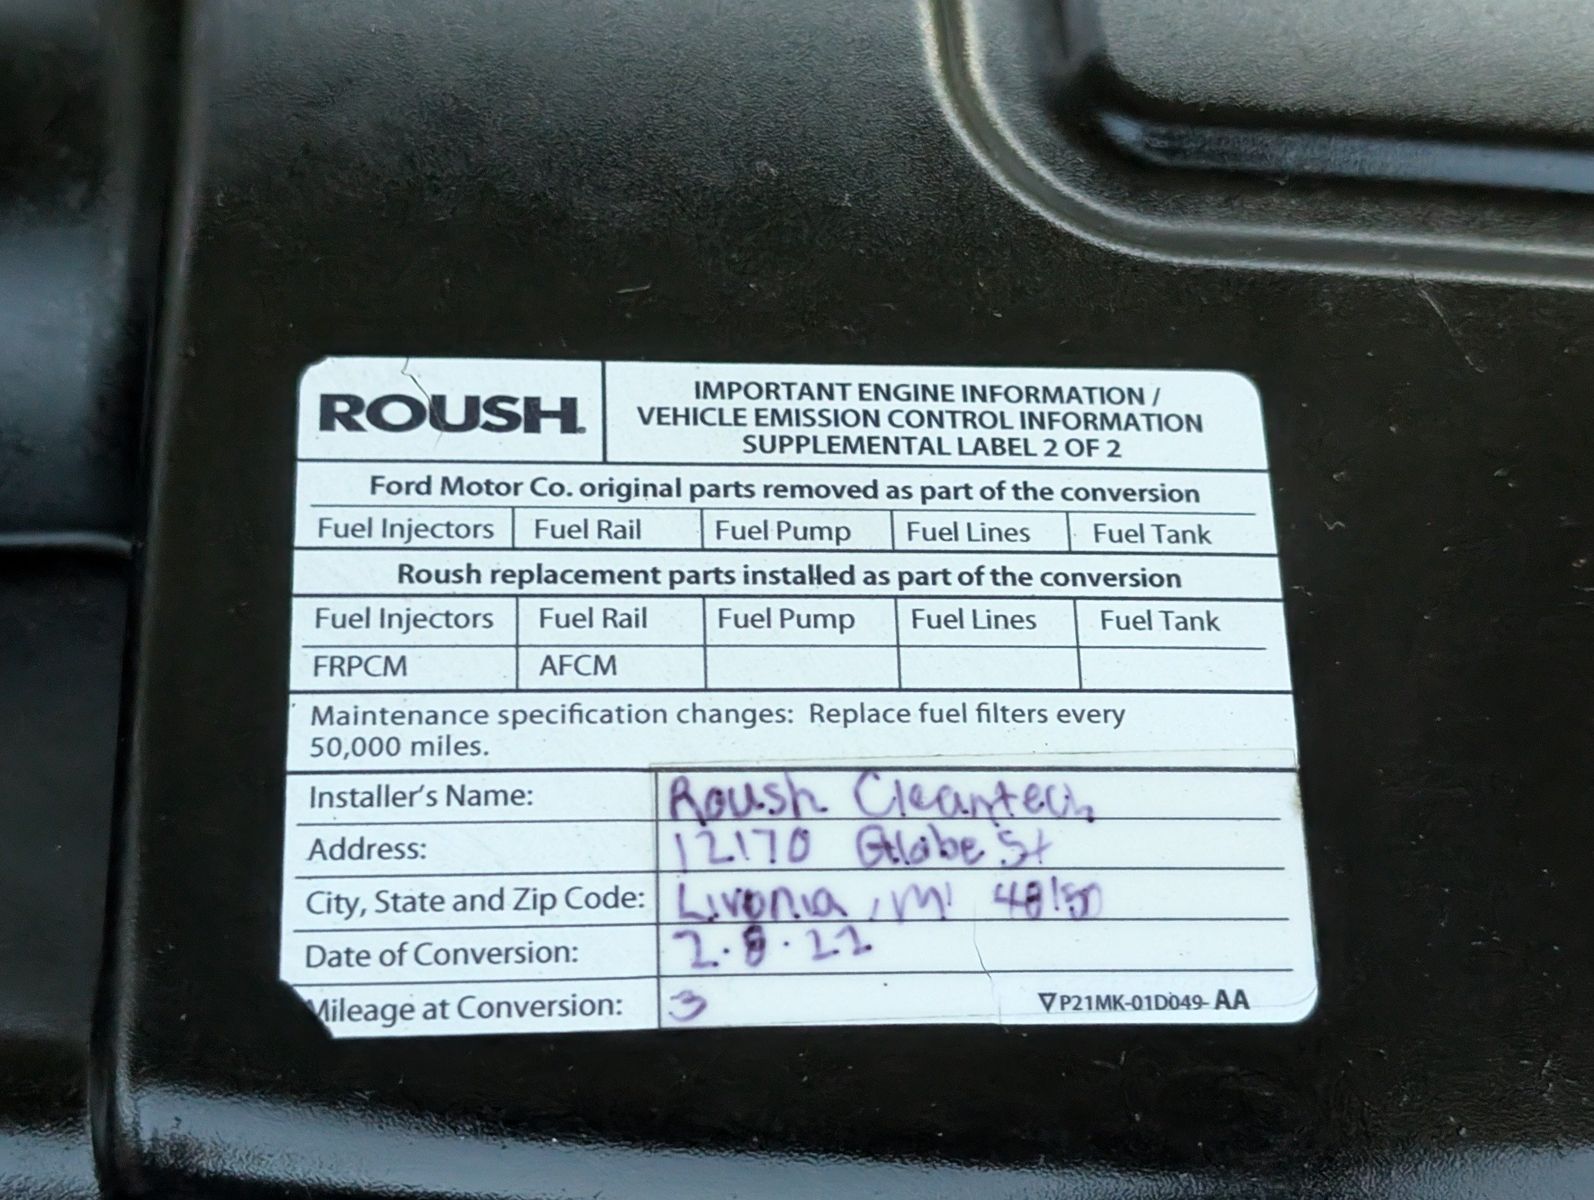 ROUSH.
IMPORTANT ENGINE INFORMATION /
VEHICLE EMISSION CONTROL INFORMATION
SUPPLEMENTAL LABEL 2 OF 2
Ford Motor Co. original parts removed as part of the conversion
Fuel Injectors Fuel Rail Fuel Pump Fuel Lines Fuel Tank
Roush replacement parts installed as part of the conversion
Fuel Injectors Fuel Rail Fuel Pump Fuel Lines Fuel Tank
FRPCM AFCM
Maintenance specification changes: Replace fuel filters every
50,000 miles.
Installer's Name: Roush Cleantech
Address: 12170 Globe St
City, State and Zip Code: Livonia, MI 48150
Date of Conversion: 2.8.22
Mileage at Conversion: 3
P21MK-01D049-AA